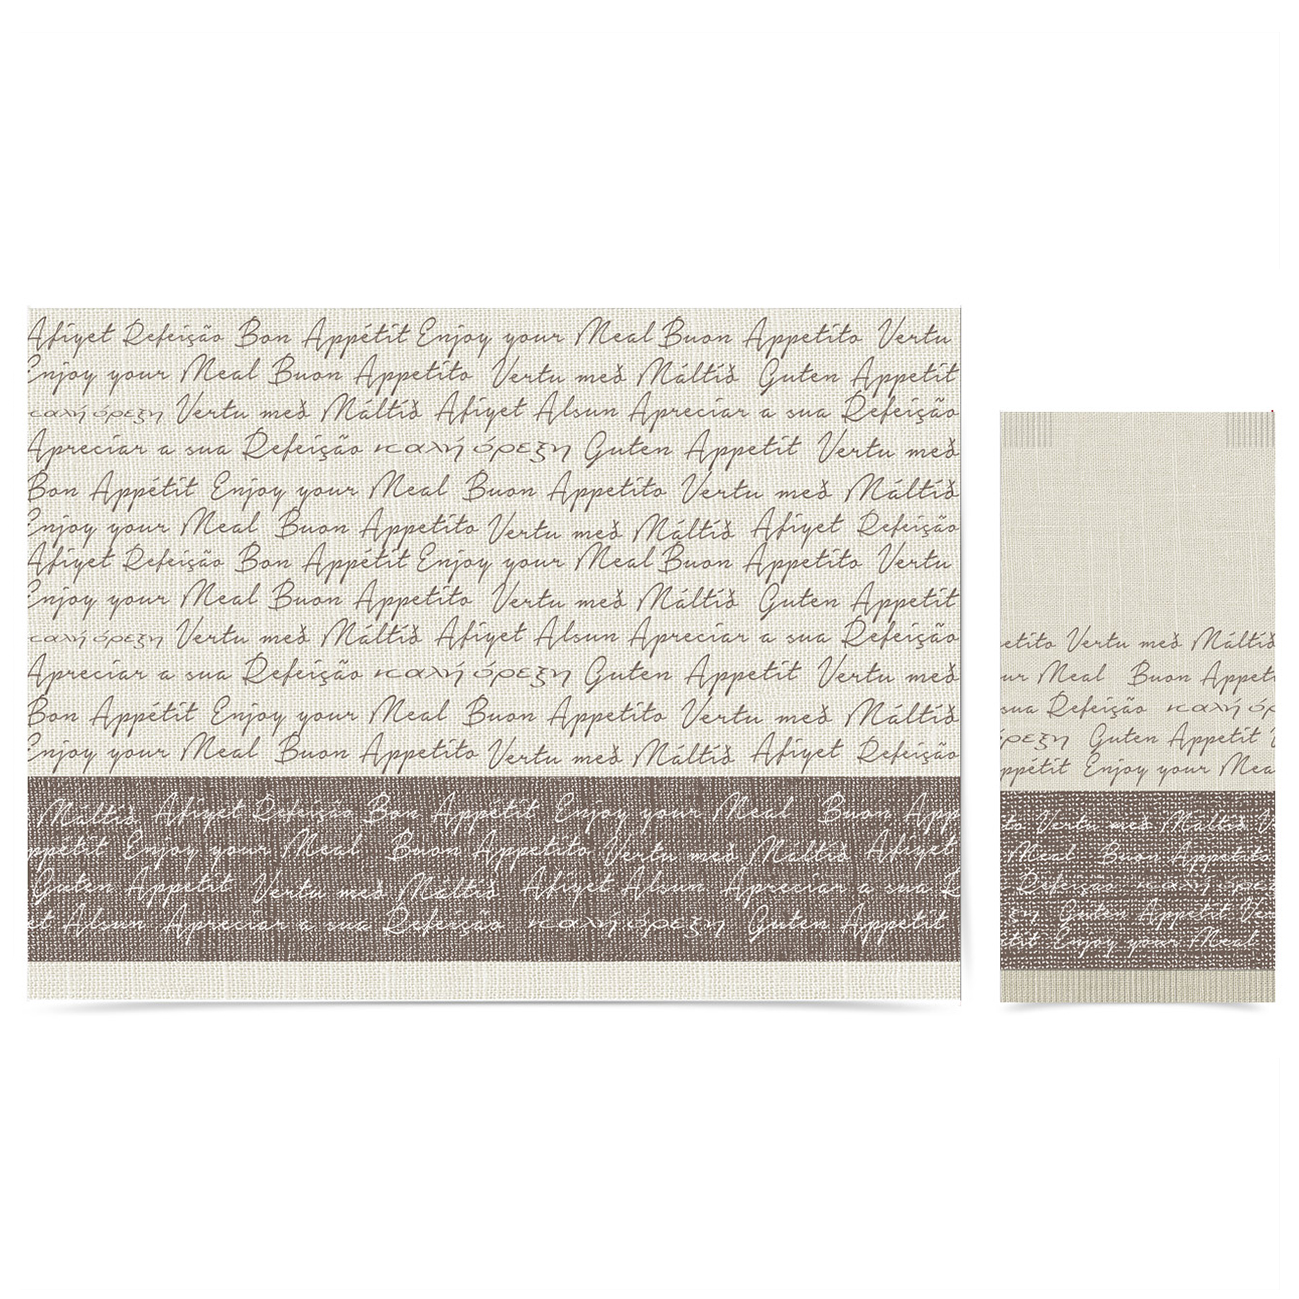 Afiyet Refeição Bon Appétit Enjoy your Meal Buon Appetito Vertu
Enjoy your Meal Buon Appetito Vertu með Máltíð Guten Appetit
καλή όρεξη Vertu með Máltíð Afiyet Alsun Apreciar a sua Refeição
Apreciar a sua Refeição καλή όρεξη Guten Appetit Vertu með
Bon Appétit Enjoy your Meal Buon Appetito Vertu með Máltíð
Enjoy your Meal Buon Appetito Vertu með Máltíð Afiyet Refeição
Afiyet Refeição Bon Appétit Enjoy your Meal Buon Appetito Vertu
Enjoy your Meal Buon Appetito Vertu með Máltíð Guten Appetit
καλή όρεξη Vertu með Máltíð Afiyet Alsun Apreciar a sua Refeição
Apreciar a sua Refeição καλή όρεξη Guten Appetit Vertu með
Bon Appétit Enjoy your Meal Buon Appetito Vertu með Máltíð
Enjoy your Meal Buon Appetito Vertu með Máltíð Afiyet Refeição
Máltíð Afiyet Refeição Bon Appétit Enjoy your Meal Buon App
ppétit Enjoy your Meal Buon Appetito Vertu með Máltíð Afiyet
Guten Appetit Vertu með Máltíð Afiyet Alsun Apreciar a sua R
et Alsun Apreciar a sua Refeição καλή όρεξη Guten Appetit
etito Vertu með Máltíð
ur Meal Buon Appeti
sua Refeição καλή όρ
ρεξη Guten Appetit V
ppétit Enjoy your Mea
to Vertu með Máltíð V
Meal Buon Appetito
Refeição καλή όρεξ
ξη Guten Appetit Ver
étit Enjoy your Meal